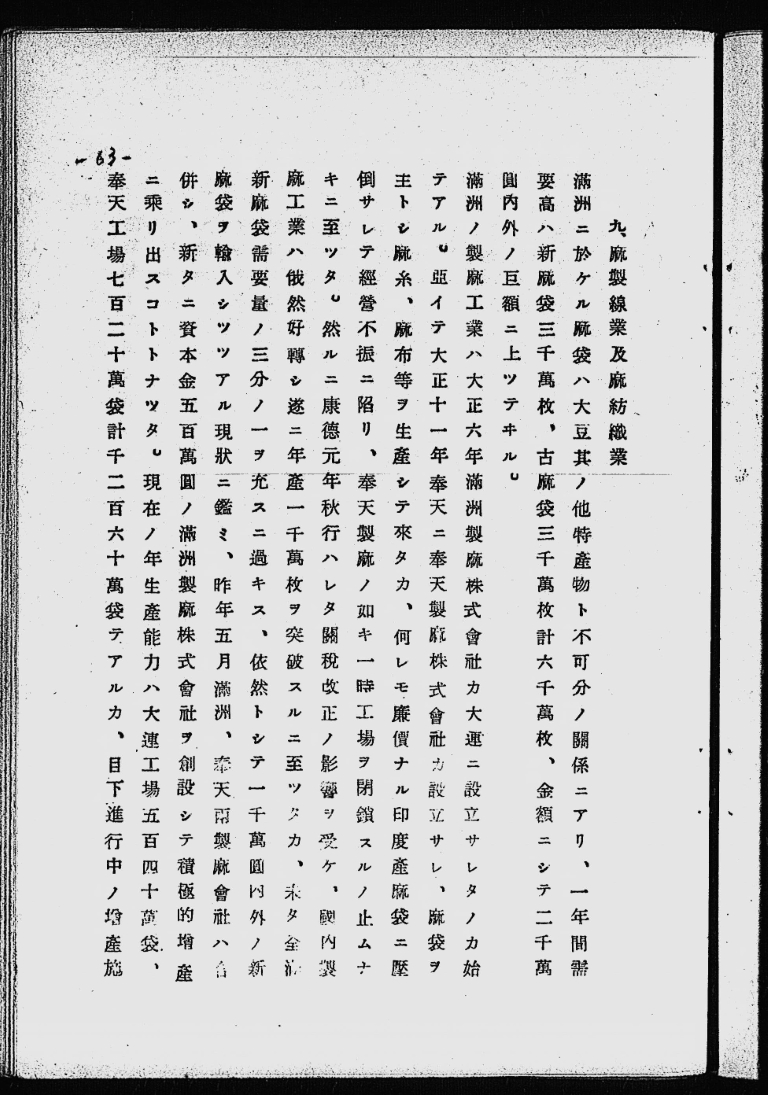 九、麻製線業及麻紡織業
滿洲ニ於ケル麻袋ハ大豆其ノ他特產物ト不可分ノ關係ニアリ、一年間需
要高ハ新麻袋三千萬枚、古麻袋三千萬枚計六千萬枚、金額ニシテ二千萬
圓內外ノ巨額ニ上ツテヰル。
滿洲ノ製麻工業ハ大正六年滿洲製麻株式會社カ大連ニ設立サレタノカ始
テアル。亞イテ大正十一年奉天ニ奉天製麻株式會社カ設立サレ、麻袋ヲ
主トシ麻糸、麻布等ヲ生產シテ來タカ、何レモ廉價ナル印度產麻袋ニ壓
倒サレテ經營不振ニ陷リ、奉天製麻ノ如キ一時工場ヲ閉鎖スルノ止ムナ
キニ至ツタ。然ルニ康德元年秋行ハレタ關稅改正ノ影響ヲ受ケ、國內製
麻工業ハ俄然好轉シ遂ニ年產一千萬枚ヲ突破スルニ至ツタカ、未タ全滿
新麻袋需要量ノ三分ノ一ヲ充スニ過キス、依然トシテ一千萬圓內外ノ新
麻袋ヲ輸入シツツアル現狀ニ鑑ミ、昨年五月滿洲、奉天兩製麻會社ハ合
併シ、新タニ資本金五百萬圓ノ滿洲製麻株式會社ヲ創設シテ積極的增產
ニ乘リ出スコトトナツタ。現在ノ年生產能力ハ大連工場五百四十萬袋、
奉天工場七百二十萬袋計千二百六十萬袋テアルカ、目下進行中ノ增產施
-63-